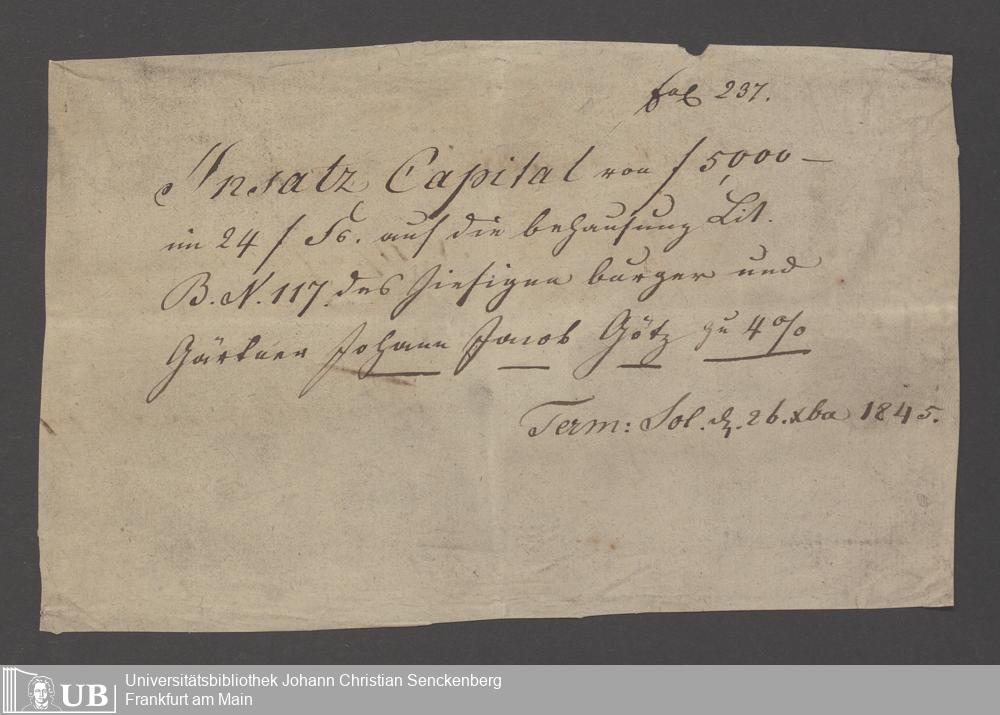 fol 237.
Insatz Capital von f 5,000 —
im 24 f Fs. auf die behausung Lit.
B. N. 117. des hiesigen burger und
Gärtner Johann Jacob Götz zu 4 %
Term: Sol. d. 26. xbr 1845.
UB
Universitätsbibliothek Johann Christian Senckenberg
Frankfurt am Main